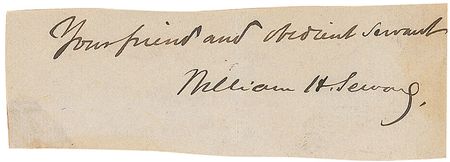 Your friend and obedient servant
William H. Seward.